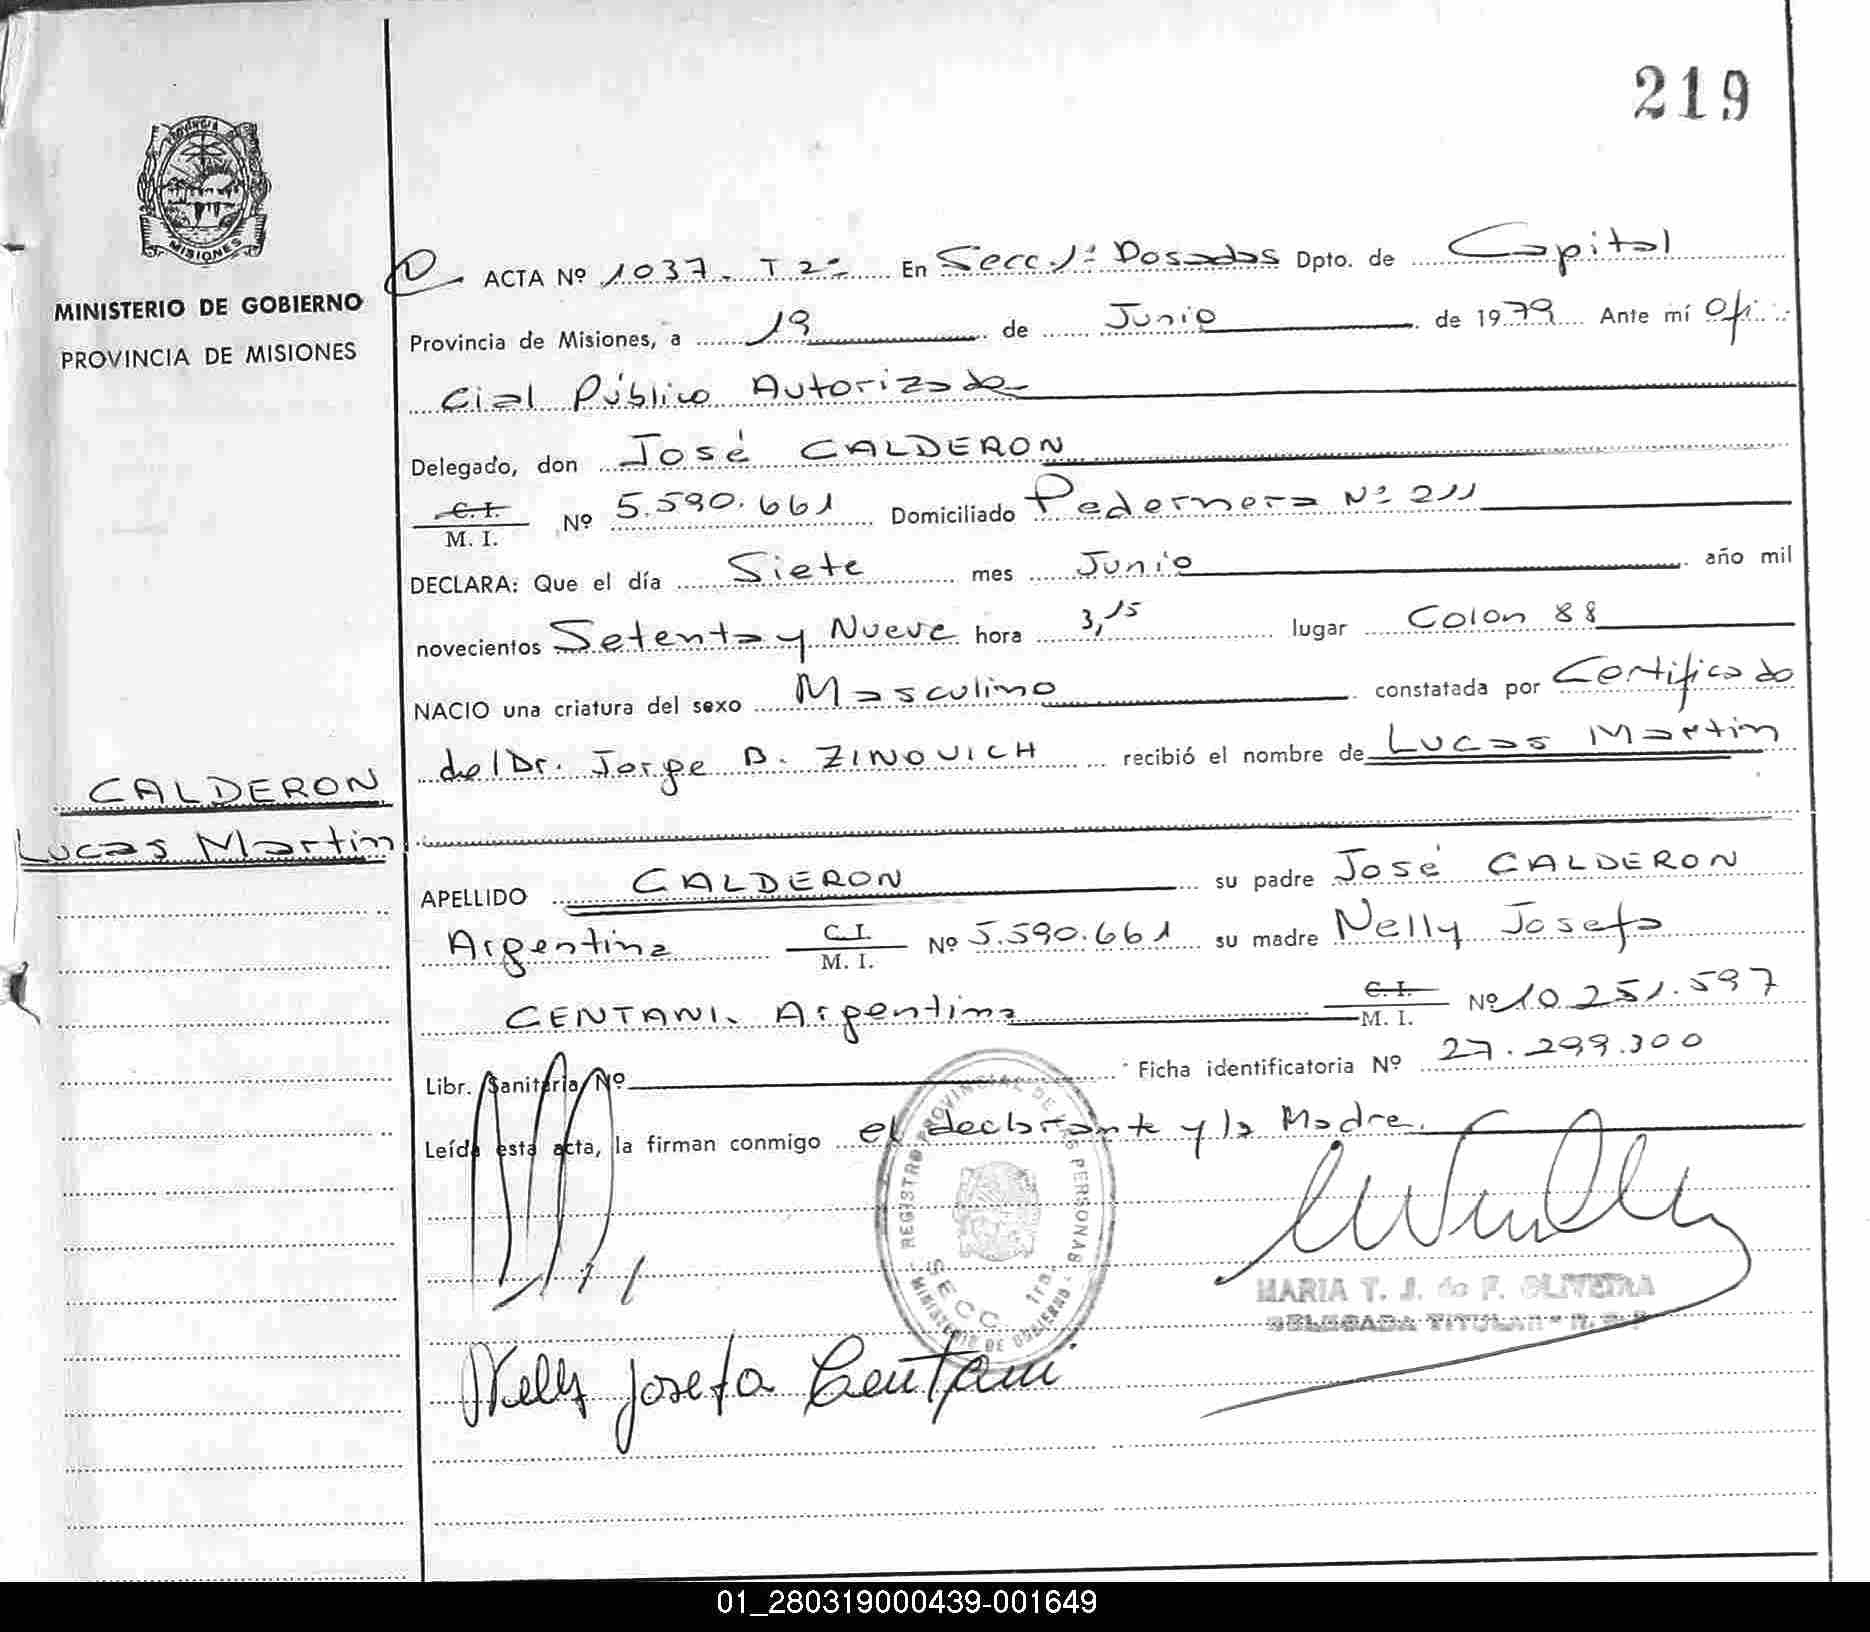 219
PROVINCIA
MISIONES
MINISTERIO DE GOBIERNO
PROVINCIA DE MISIONES
ACTA Nº 1037. T 2º En Secc. 1ª Posadas Dpto. de Capital
Provincia de Misiones, a 19 de Junio de 1979 Ante mí Ofi
cial Público Autorizado
Delegado, don José CALDERON
C. I.
M. I. Nº 5.590.661 Domiciliado Pedernera Nº 211
DECLARA: Que el día Siete mes Junio año mil
novecientos Setenta y Nueve hora 3,15 lugar Colon 88
NACIO una criatura del sexo Masculino constatada por Certificado
del Dr. Jorge B. ZINOVICH recibió el nombre de Lucas Martin
CALDERON
Lucas Martin
APELLIDO CALDERON su padre José CALDERON
Argentina C. I.
M. I. Nº 5.590.661 su madre Nelly Josefa
CENTANI. Argentina C. I.
M. I. Nº 10.251.597
Libr. Sanitaria Nº Ficha identificatoria Nº 27.299.300
Leída esta acta, la firman conmigo el declarante y la Madre.
REGISTRO PROVINCIAL DE LAS PERSONAS
SECC. 1ra.
MINISTERIO DE GOBIERNO
MARIA T. J. de F. OLIVEIRA
DELEGADA TITULAR - R. P. P.
Nelly Josefa Centani
01_280319000439-001649